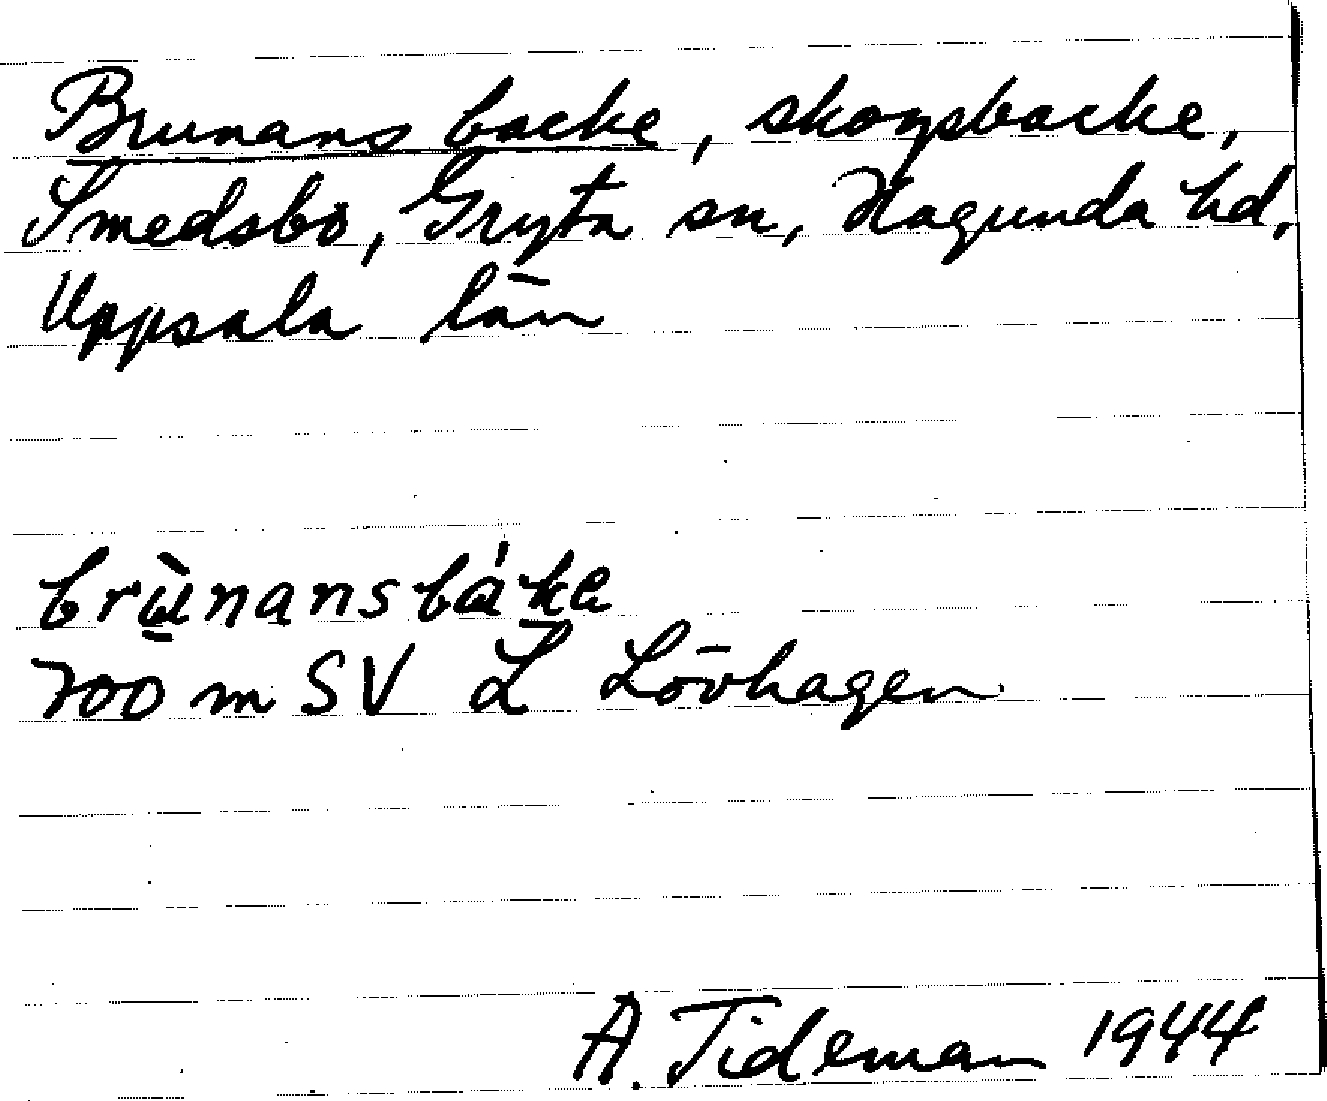 Brunans backe, skogsbacke,
Smedsbo, Gryta sn, Hagunda hd,
Uppsala län
brù̱nansbáḵe
700 m SV L Lövhagen
A. Tideman 1944